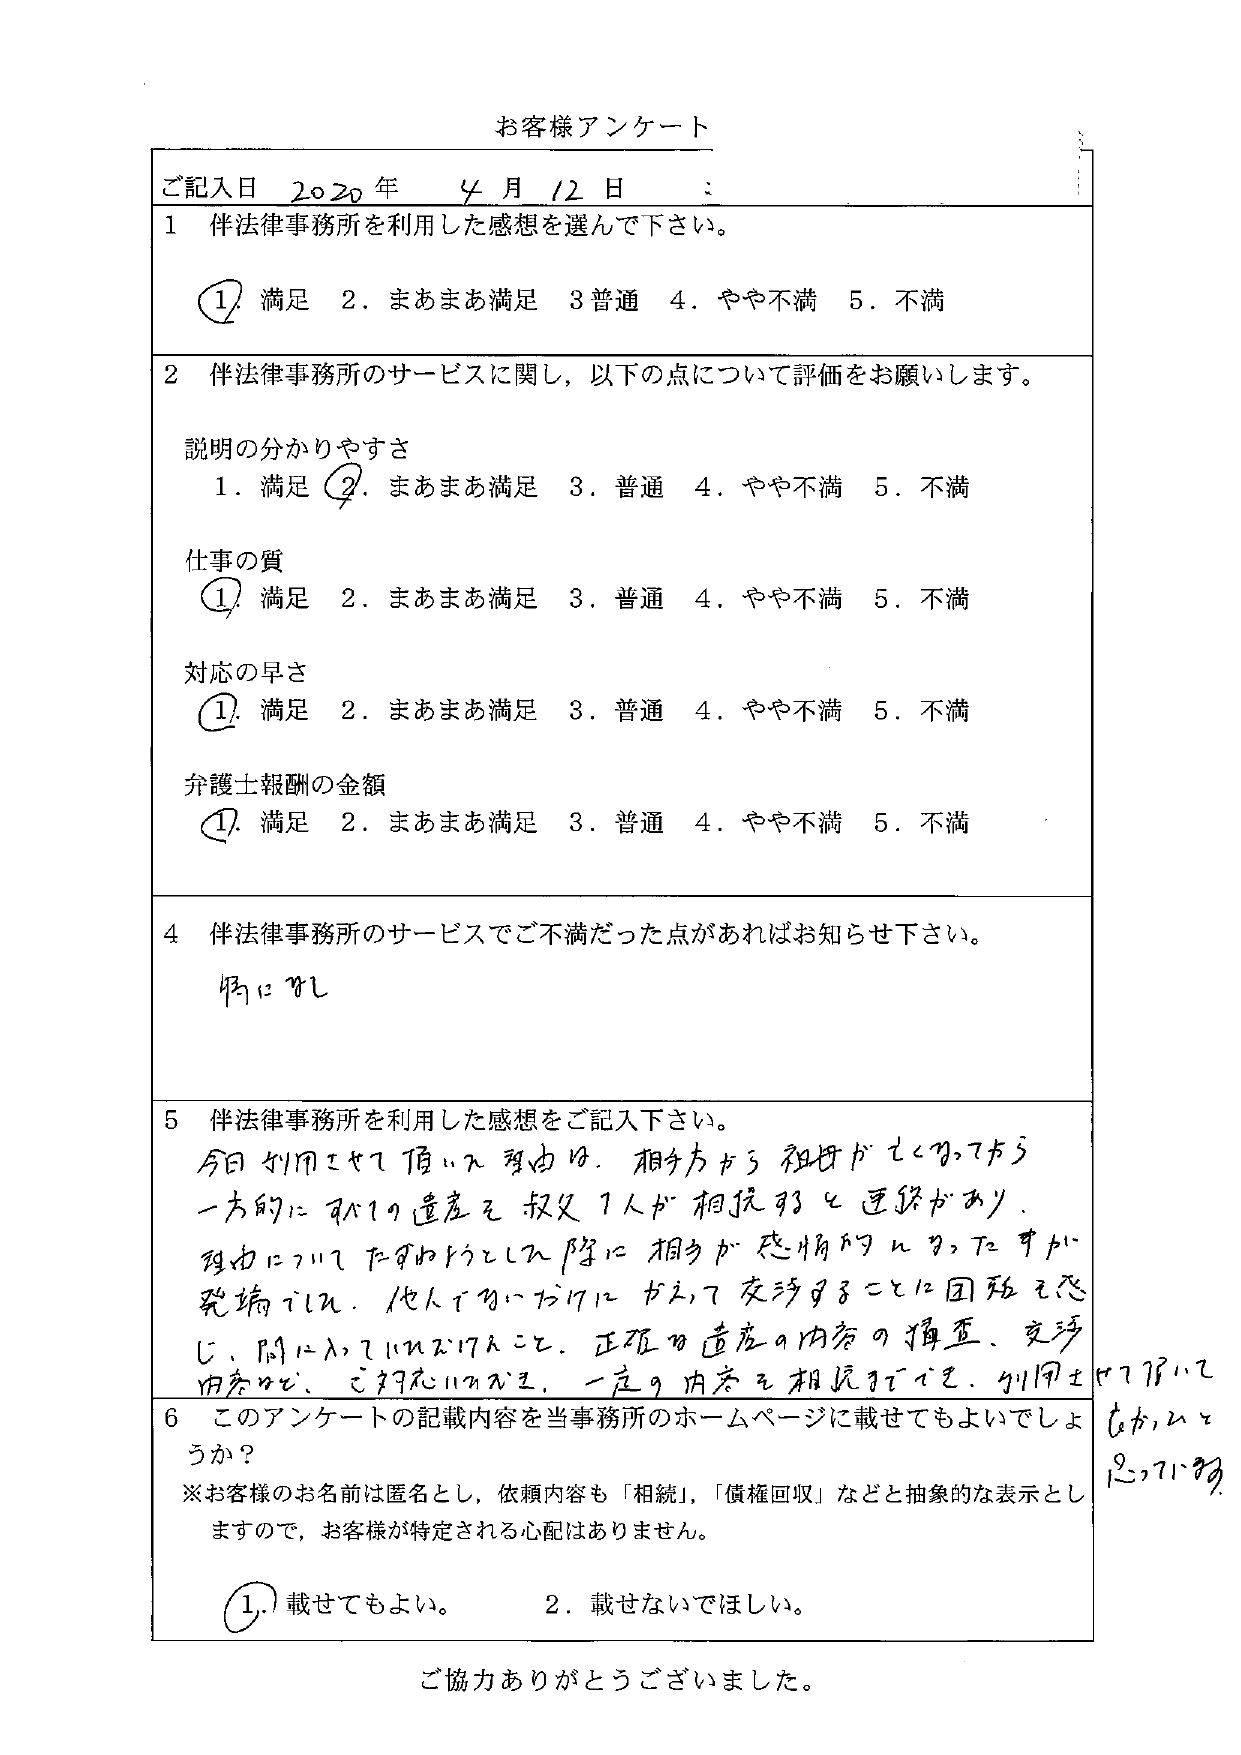 お客様アンケート
ご記入日 2020年 4月 12日
1 伴法律事務所を利用した感想を選んで下さい。
1. 満足 2. まあまあ満足 3普通 4. やや不満 5. 不満
2 伴法律事務所のサービスに関し，以下の点について評価をお願いします。
説明の分かりやすさ
1. 満足 2. まあまあ満足 3. 普通 4. やや不満 5. 不満
仕事の質
1. 満足 2. まあまあ満足 3. 普通 4. やや不満 5. 不満
対応の早さ
1. 満足 2. まあまあ満足 3. 普通 4. やや不満 5. 不満
弁護士報酬の金額
1. 満足 2. まあまあ満足 3. 普通 4. やや不満 5. 不満
4 伴法律事務所のサービスでご不満だった点があればお知らせ下さい。
特になし
5 伴法律事務所を利用した感想をご記入下さい。
今回利用させて頂いた理由は、相手方から祖母が亡くなってから
一方的にすべての遺産を叔父1人が相続すると連絡があり、
理由についてたずねようとした際に相手が感情的になった事が
発端でした。他人でないだけにかえって交渉することに困難を感
じ、間に入っていただけたこと、正確な遺産の内容の調査、交渉
内容など、ご対応いただき、一定の内容を相続まででき、利用させて頂いて
よかったと
思っています。
6 このアンケートの記載内容を当事務所のホームページに載せてもよいでしょ
うか？
※お客様のお名前は匿名とし，依頼内容も「相続」，「債権回収」などと抽象的な表示とし
ますので，お客様が特定される心配はありません。
1. 載せてもよい。 2. 載せないでほしい。
ご協力ありがとうございました。